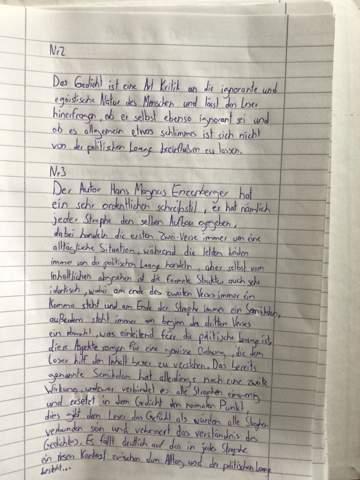 Nr2
Das Gedicht ist eine Art Kritik an die ignorante und
egoistische Natur des Menschen und lässt den Leser
hinterfragen, ob er selbst ebenso ignorant sei und
ob es allgemein etwas schlimmes ist sich nicht
von der politischen Lange beeinflußen zu lassen.
Nr3
Der Autor Hans Magnus Enzenberger hat
ein sehr ordentlichen schreibstil, er hat nämlich
jeder Strophe den selben Aufbau gegeben,
dabei handeln die ersten Zwei-Verse immer um eine
alltägliche Situation, während die letzten beiden
immer von der politischen Lange handeln, aber selbst vom
Inhaltlichen abgesehen ist die formale Struktur auch sehr
identisch, wobei am ende des zweiten Verses immer ein
Komma steht und am Ende der Strophe immer ein Semikolon,
außerdem steht immer am beginn des dritten Verses
ein, was einleitend für die politische Lange ist
diese Aspekte sorgen für eine gewisse Ordnung, die dem
Leser hilft den Inhalt besser zu verstehen. Das bereits
genannte Semikolon hat allerdings noch eine zweite
Wirkung, verbindet es alle Strophen
und ersetzt in dem Gedicht den normalen Punkt,
dies gibt dem Leser das Gefühl als würden alle Strophen
verbunden sein und das verständnis des
Gedichtes. Es fällt deutlich auf das in jeder Strophe
ein Kontrast zwischen dem Alltag und der politischen Lange
besteht...